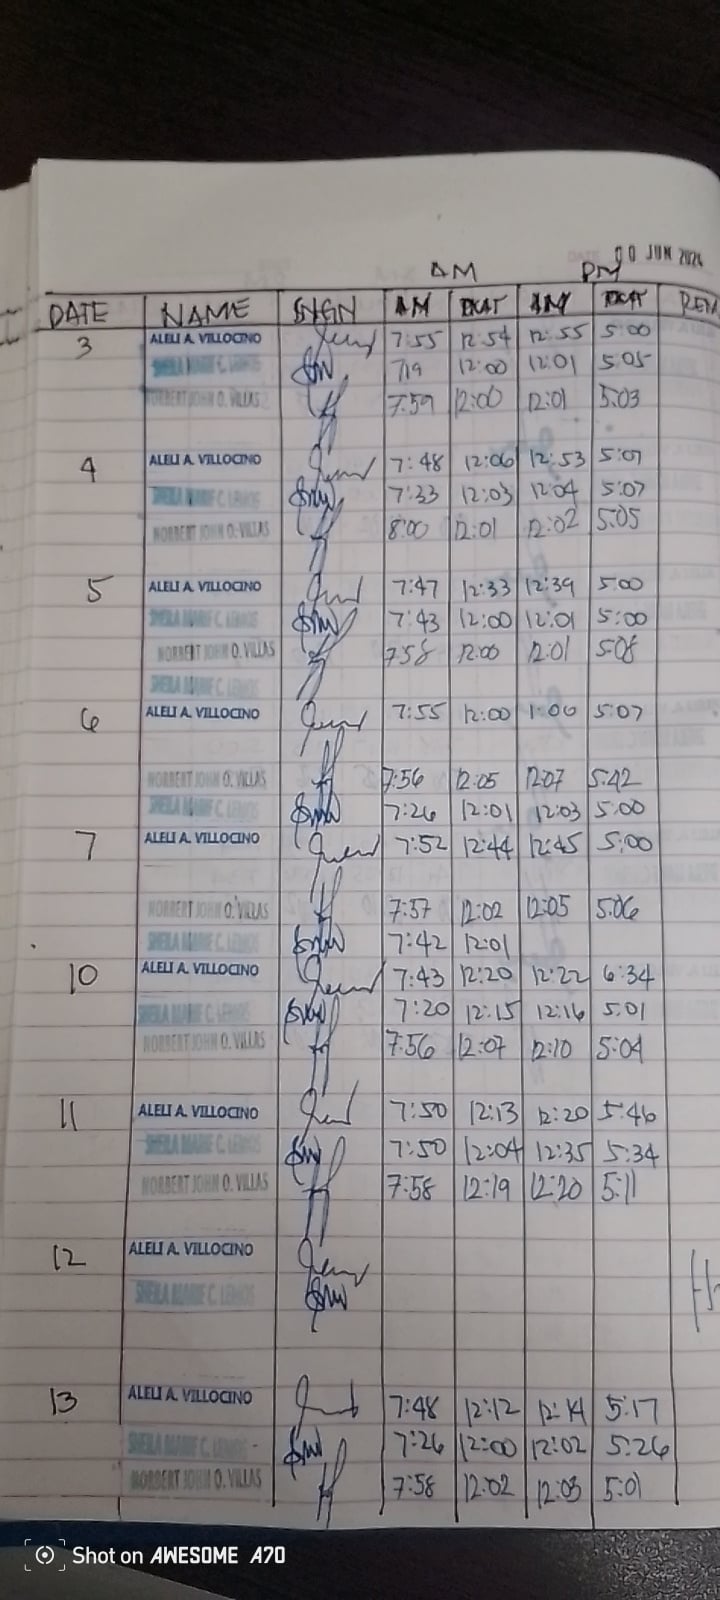 00 JUN 2024
AM PM
DATE NAME SIGN AM EXAT AM EXAT REM
3 ALELI A. VILLOCINO 7:55 12:54 12:55 5:00
SHEILA MARIE C. LEMOS 7:19 12:00 12:01 5:05
NORBERT JOHN O. VILLAS 7:59 12:00 12:01 5:03
4 ALELI A. VILLOCINO 7:48 12:06 12:53 5:07
SHEILA MARIE C. LEMOS 7:33 12:03 12:04 5:07
NORBERT JOHN O. VILLAS 8:00 12:01 12:02 5:05
5 ALELI A. VILLOCINO 7:47 12:33 12:39 5:00
SHEILA MARIE C. LEMOS 7:43 12:00 12:01 5:00
NORBERT JOHN O. VILLAS 7:58 12:00 12:01 5:08
SHEILA MARIE C. LEMOS
6 ALELI A. VILLOCINO 7:55 12:00 1:00 5:07
NORBERT JOHN O. VILLAS 7:56 12:05 12:07 5:42
SHEILA MARIE C. LEMOS 7:26 12:01 12:03 5:00
7 ALELI A. VILLOCINO 7:52 12:44 12:45 5:00
NORBERT JOHN O. VILLAS 7:57 12:02 12:05 5:06
SHEILA MARIE C. LEMOS 7:42 12:01
10 ALELI A. VILLOCINO 7:43 12:20 12:22 6:34
SHEILA MARIE C. LEMOS 7:20 12:15 12:16 5:01
NORBERT JOHN O. VILLAS 7:56 12:07 12:10 5:04
11 ALELI A. VILLOCINO 7:50 12:13 12:20 5:46
SHEILA MARIE C. LEMOS 7:50 12:04 12:35 5:34
NORBERT JOHN O. VILLAS 7:58 12:19 12:20 5:11
12 ALELI A. VILLOCINO
SHEILA MARIE C. LEMOS
13 ALELI A. VILLOCINO 7:48 12:12 12:14 5:17
SHEILA MARIE C. LEMOS - 7:26 12:00 12:02 5:26
NORBERT JOHN O. VILLAS 7:58 12:02 12:03 5:01
Shot on AWESOME A70